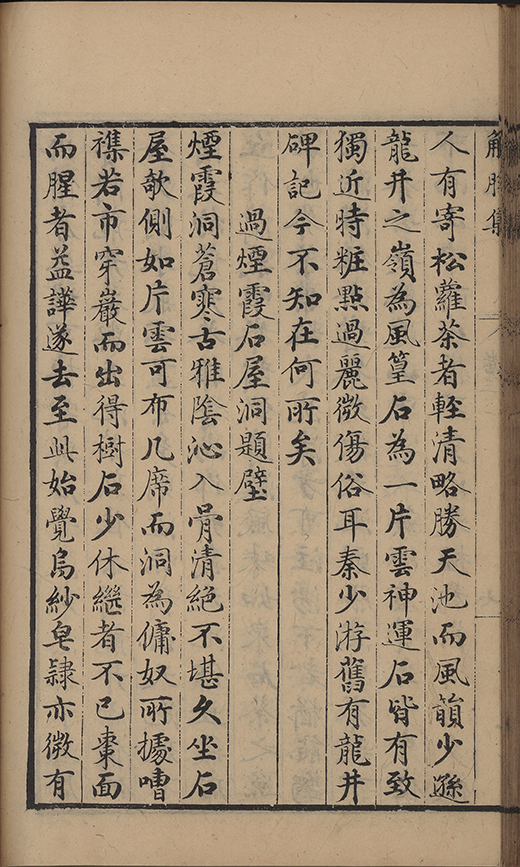 解脫集
人有寄松蘿茶者輕清略勝天池而風韻少遜
龍井之嶺為風篁石為一片雲神運石皆有致
獨近時粧點過麗微傷俗耳秦少游舊有龍井
碑記今不知在何所矣
過煙霞石屋洞題壁
煙霞洞蒼寒古雅陰沁入骨清絕不堪久坐石
屋欹側如片雲可布几席而洞為傭奴所據嘈
襍若市穿巖而出得樹石少休繼者不已棗面
而腥者益譁遂去至此始覺烏紗皂隷亦微有